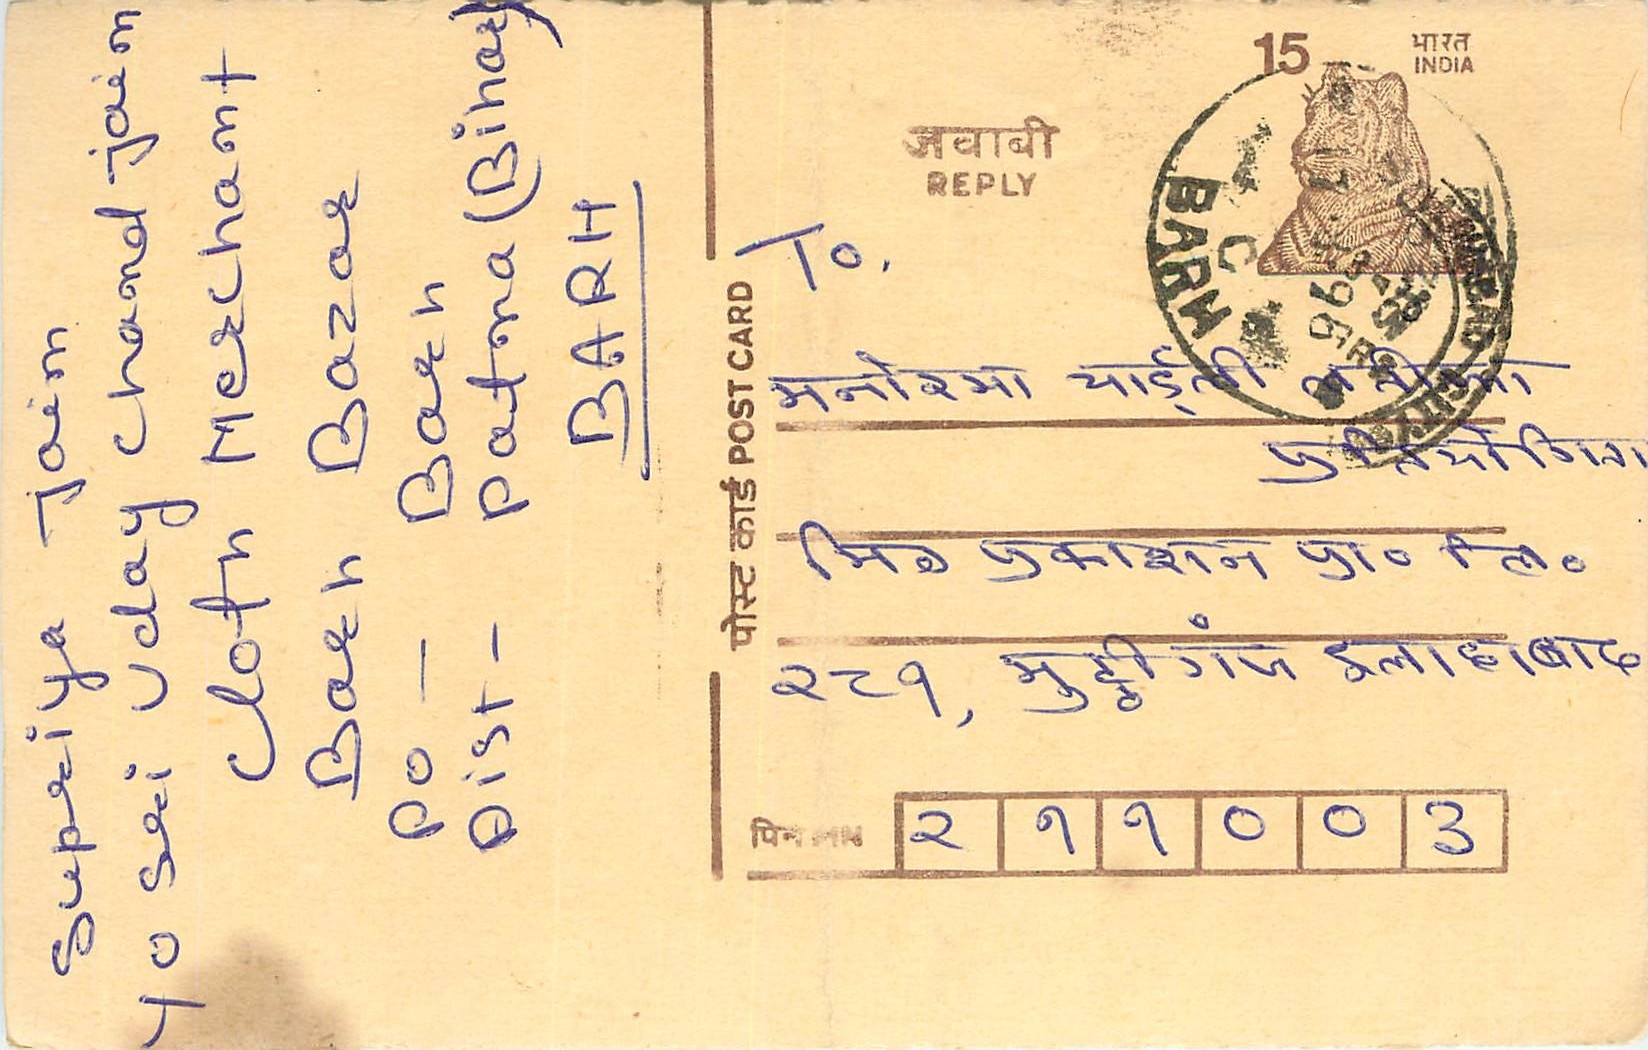 Supriya jain
C/o Sri Uday Chand jain
Cloth Merchant
Barh Bazar
PO - Barh
Dist - Patna (Bihar)
BARH
15
भारत
INDIA
जवाबी
REPLY
BARH
पोस्ट कार्ड POST CARD
To.
मनोरमा
प्रतियोगिता
मित्र प्रकाशन प्रा० लि०
२८१, मुट्ठीगंज इलाहाबाद
पिन
२११००3